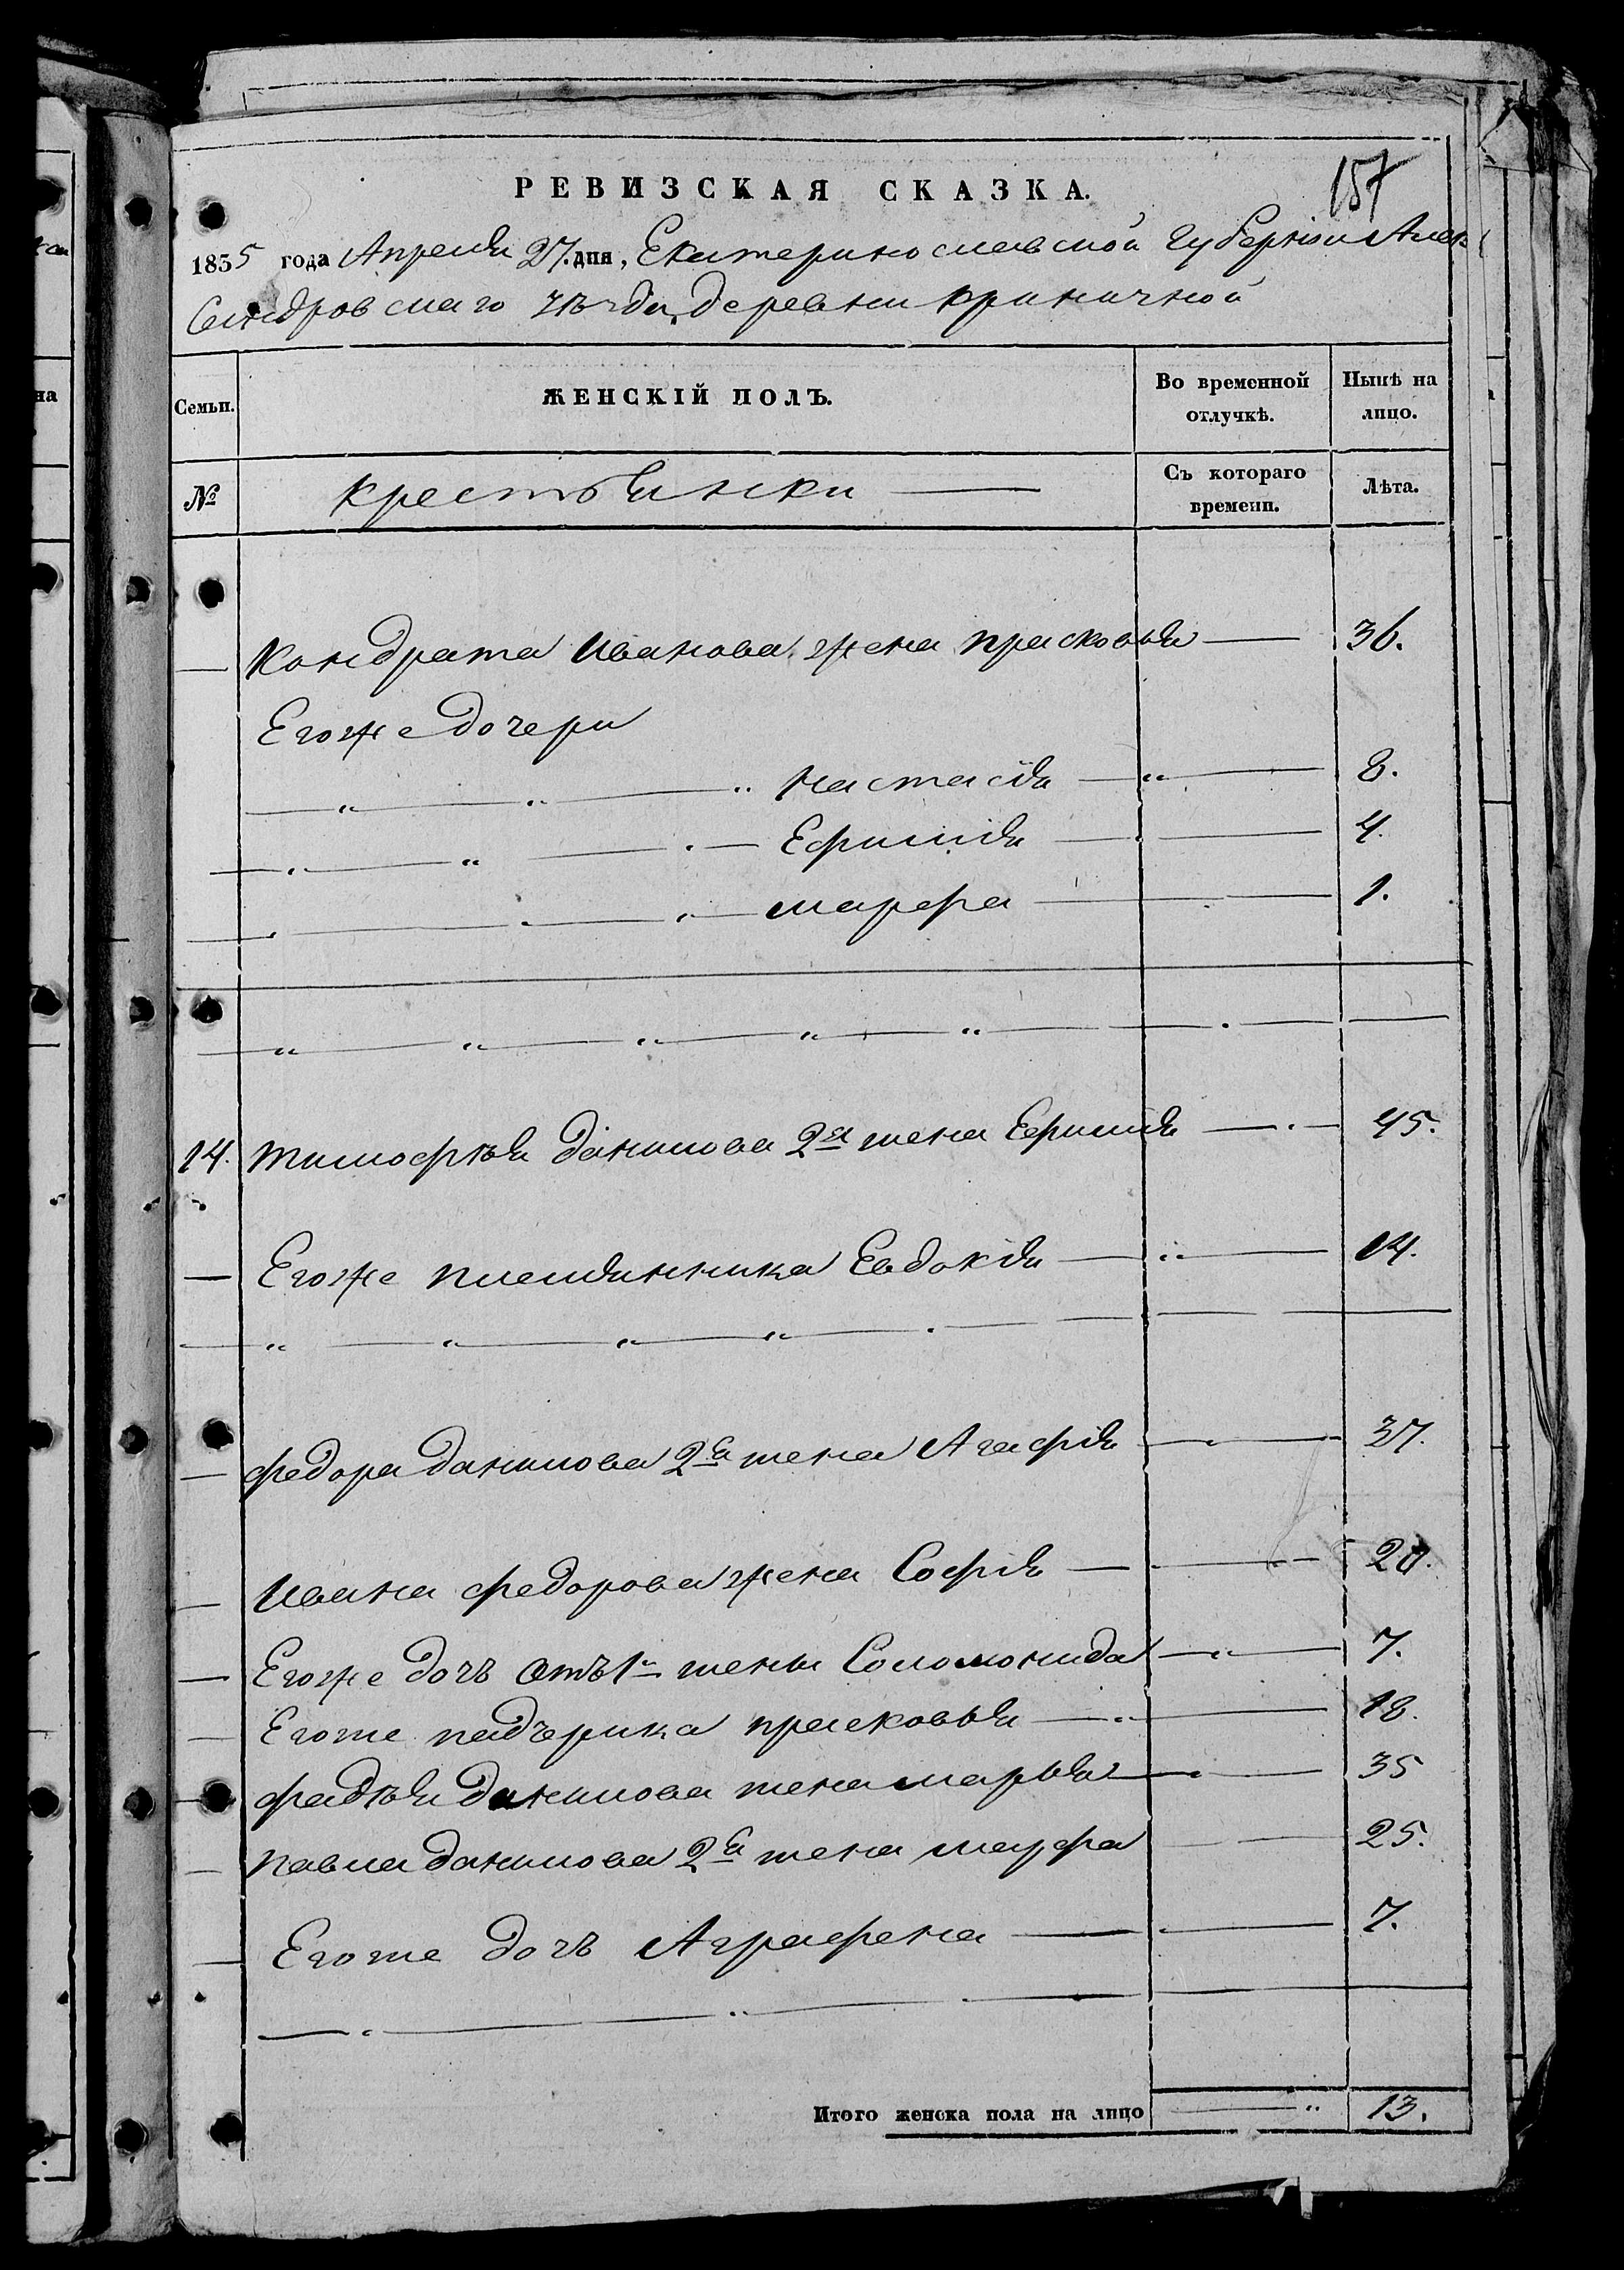 157
РЕВИЗСКАЯ СКАЗКА.
1835 года Апреля 27. дня, Екатеринославской Губернии Алек
сандровскаго уѣзда, деревни криничной
Семьи. ЖЕНСКІЙ ПОЛЪ. Во временной отлучкѣ. Нынѣ на лицо.
№ крестьянки — Съ котораго времени. Лѣта.
— Кондрата Иванова жена прасковья — 36.
Егоже дочери
— " — " — " Настасія — " — 8.
— " — " — " — Ефимія — 4.
— " — " — " — марфа — 1.
— " — " — " — " — " — " —
14. тимофѣя данилова 2я жена Ефимія — " — 45.
— Егоже племянница Евдокія — " — 14.
— " — " — " — " — " —
— федора данилова 2я жена Агафія — " — 37.
— Ивана федорова жена Софія — " — 20.
— Егоже дочь отъ 1й жены Соломонида — " — 7.
— Егоже падчерица прасковья — " — 18.
— фадѣя данилова жена марья — " — 35
— павла данилова 2я жена марфа — 25.
— Егоже дочь Аграфена — 7.
— " — " —
Итого женска пола на лицо — " 13.